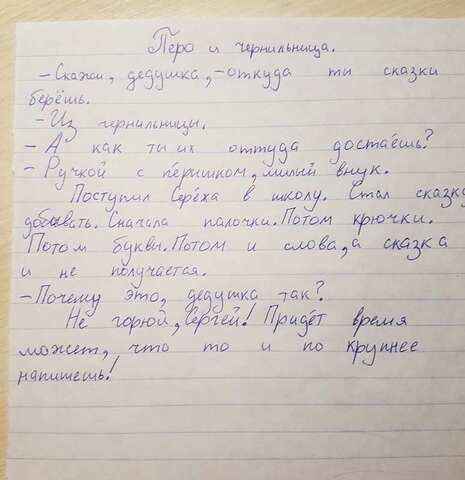 Перо и чернильница.
- Скажи, дедушка, - откуда ты сказки
берёшь.
- Из чернильницы.
- А как ты их оттуда достаёшь?
- Ручкой с пёришком, милый внук.
Поступил Серёха в школу. Стал сказку
добывать. Сначала палочки. Потом крючки.
Потом буквы. Потом и слова, а сказка
и не получается.
- Почему это, дедушка так?
Не горюй, Сергей! Придёт время
может, что то и по крупнее
напишешь!